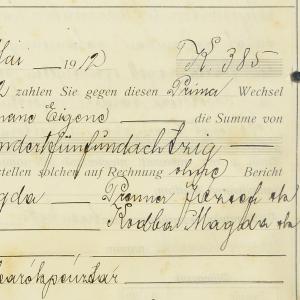 Mai — 1912 K. 385
2 zahlen Sie gegen diesen Prima Wechsel
Eigene — die Summe von
hundertfünfundachtzig —
stellen solchen auf Rechnung ohne Bericht
gda — József
Magda